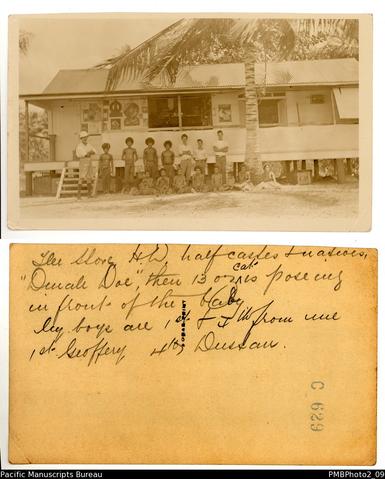 The Store, H.Q, half castes & natives,
"Dinah Doe", then 13 or
cat is posing
in front of the Baby
My boys are 1st & 4th from me
1st Geoffery 4th Dussan.
C 629
Pacific Manuscripts Bureau
PMBPhoto2_09